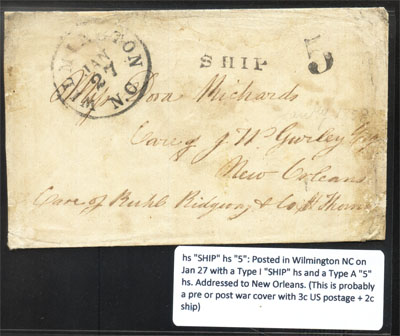 WILMINGTON N.C.
JAN
27
SHIP
5
Miss Dora Richards
Care of J. W. Gurley Esq
New Orleans
Care of Ridgway & Co. St
hs "SHIP" hs "5": Posted in Wilmington NC on
Jan 27 with a Type I "SHIP" hs and a Type A "5"
hs. Addressed to New Orleans. (This is probably
a pre or post war cover with 3c US postage + 2c
ship)